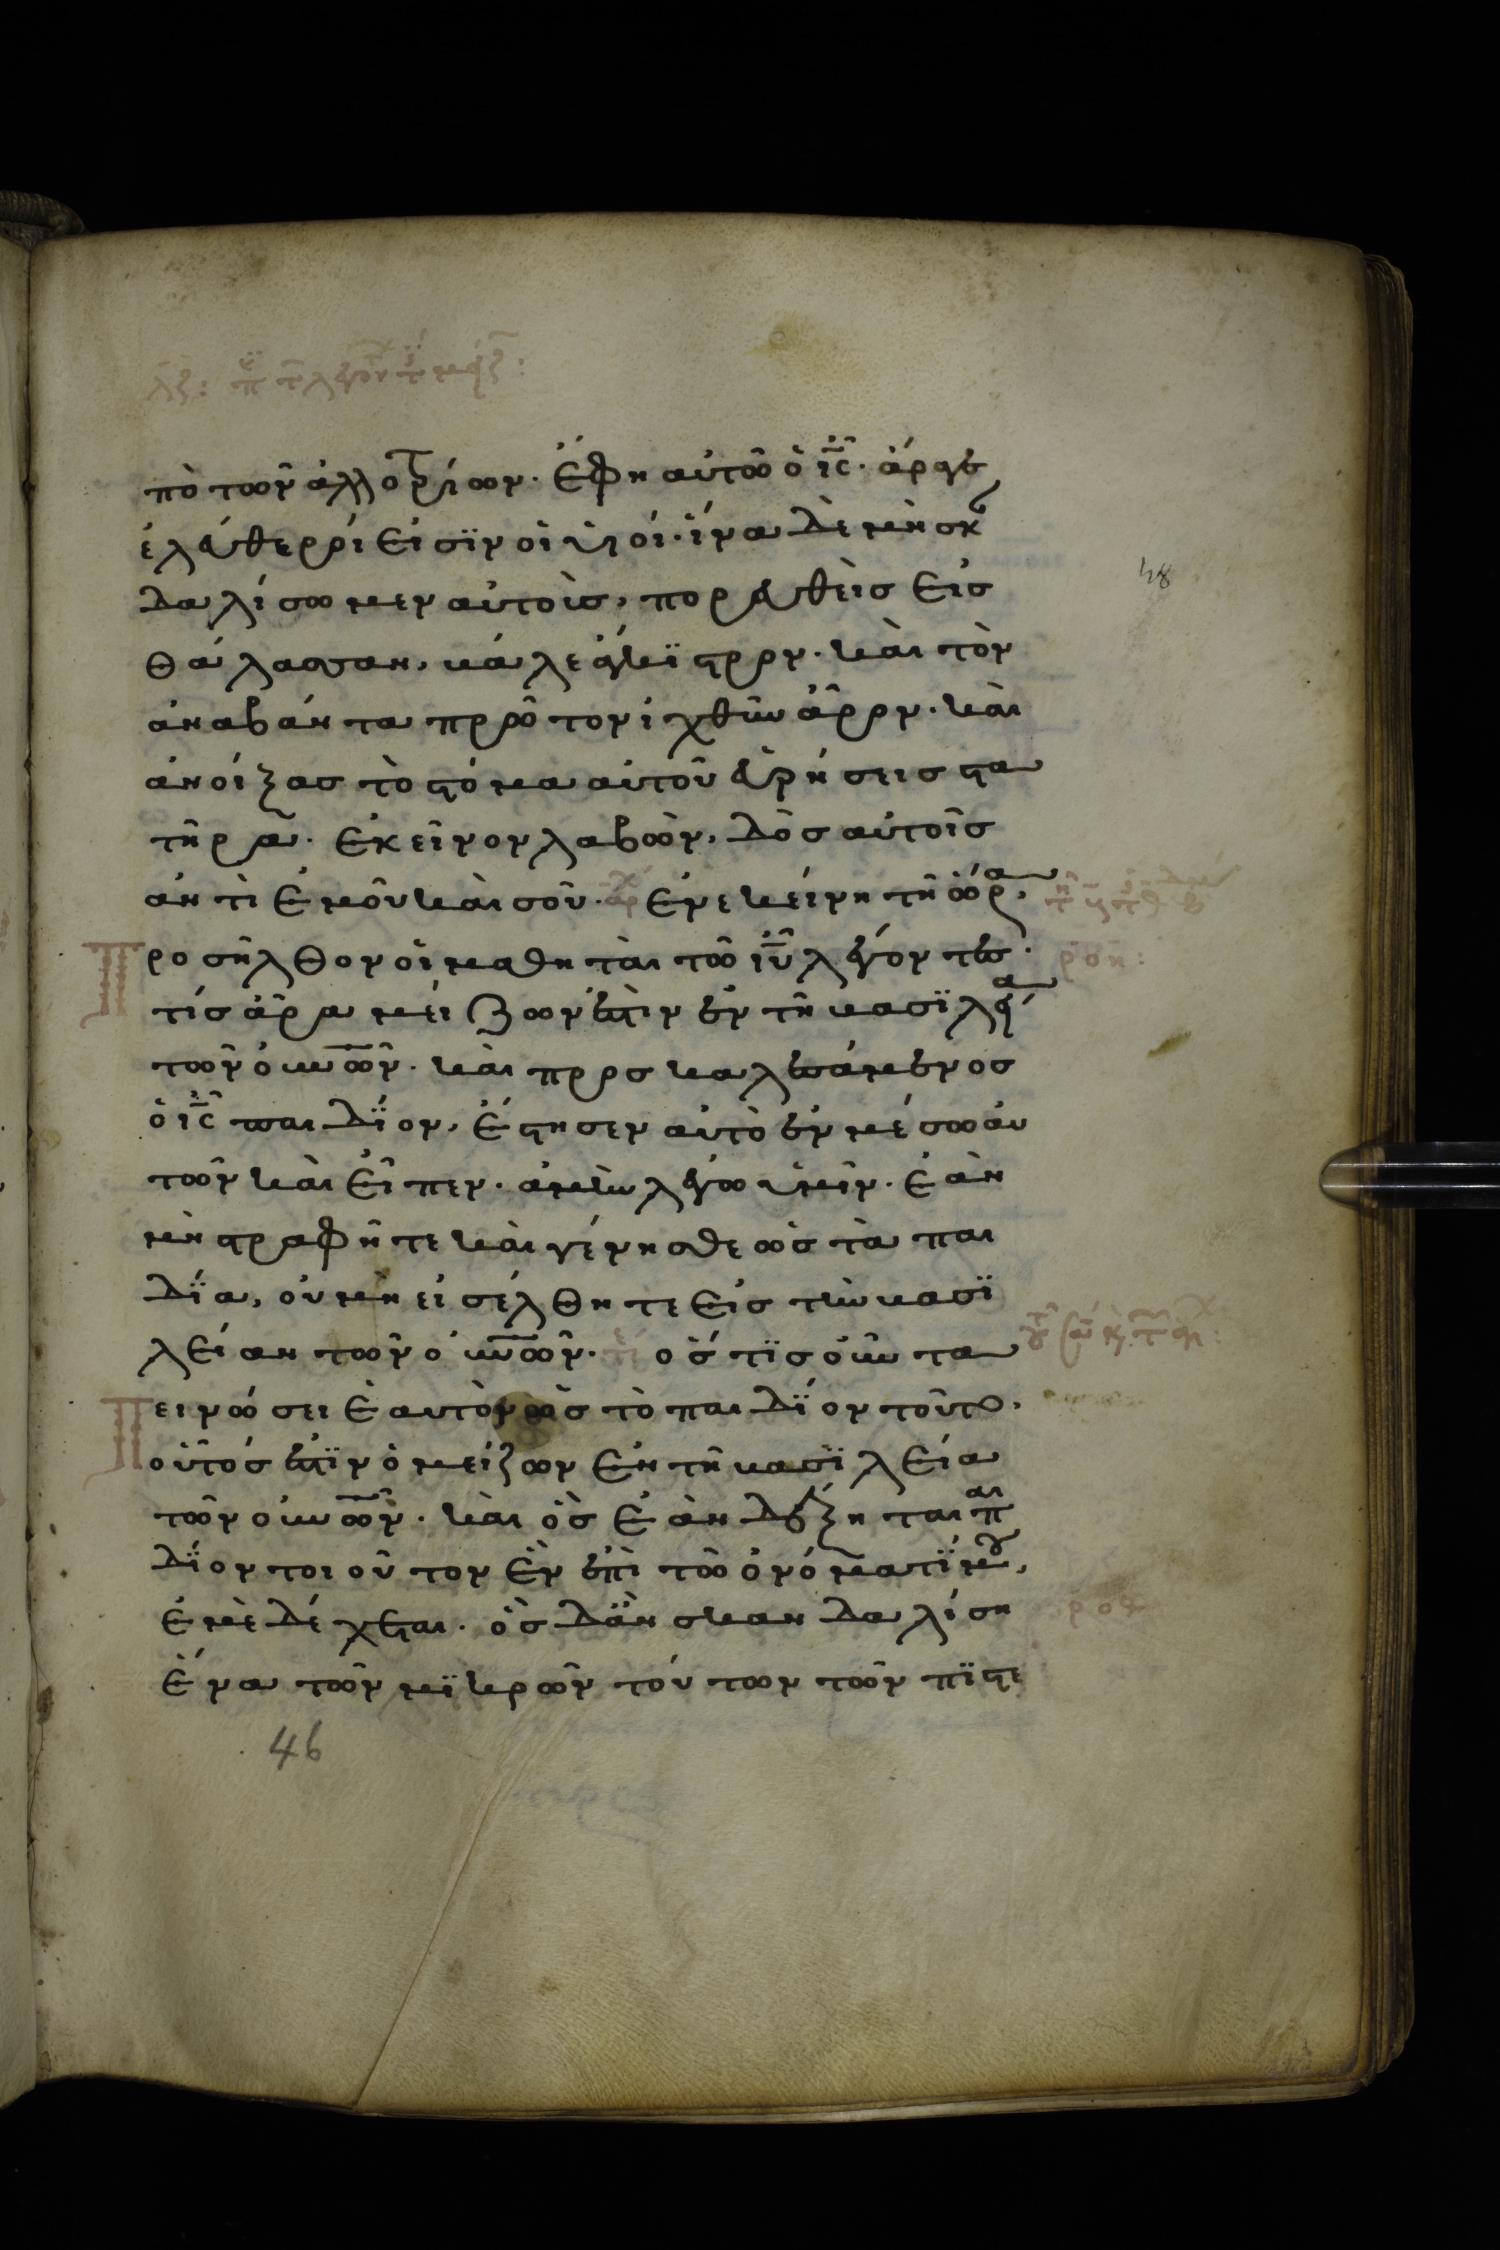 πὸ τῶν ἀλλοτρίων· ἔφη αὐτῶ ὁ ις̅· ἄραγε
ἐλεύθεροί εἰσϊν οἱ υἱοί· ἵνα δὲ μὴ σκα
δαλίσωμεν αὐτοὺσ, πορευθεὶσ εἰσ
θάλασσαν, βάλε ἄγκϊστρον· καὶ τὸν
ἀναβάντα πρῶτον ἰχθῦν ἆρον· καὶ
ἀνοίξασ τὸ στόμα αὐτοῦ εὑρήσεισ στα
τῆρα· ἐκεῖνον λαβὼν, δὸσ αὐτοῖσ
ἀντὶ ἐμοῦ καὶ σοῦ· ἐν ἐκείνη τῆ ὥρα,
Προσῆλθον οἱ μαθηταὶ τῶ ιυ̅ λέγοντεσ·
τίσ ἄρα μείζων ἐστὶν ἐν τῆ βασϊλεία
τῶν οὐνῶν· καὶ προσκαλεσάμενοσ
ὁ ις̅ παιδΐον, ἔστησεν αὐτὸ ἐν μέσω αὐ
τῶν καὶ εἶπεν· ἀμὴν λέγω ὑμῖν· ἐὰν
μὴ στραφῆτε καὶ γένησθε ὡσ τὰ παι
δΐα, οὐ μὴ εἰσέλθητε εἰσ τὴν βασϊ
λείαν τῶν οὐνῶν· ὅστϊσ οὖν τα
Πεινώσει ἑαυτὸν ὡσ τὸ παιδΐον τοῦτο,
οὗτόσ ἐστϊν ὁ μείζων ἐν τῆ βασϊλεία
τῶν οὐνῶν· καὶ ὃσ ἐὰν δέξηται παι
δΐον τοιοῦτον ἓν ἐπὶ τῶ ὀνόματΐ μου,
ἐμὲ δέχεται· ὃσ δ' ἂν σκανδαλίση
ἕνα τῶν μϊκρῶν τούτων τῶν πϊστε
46
48